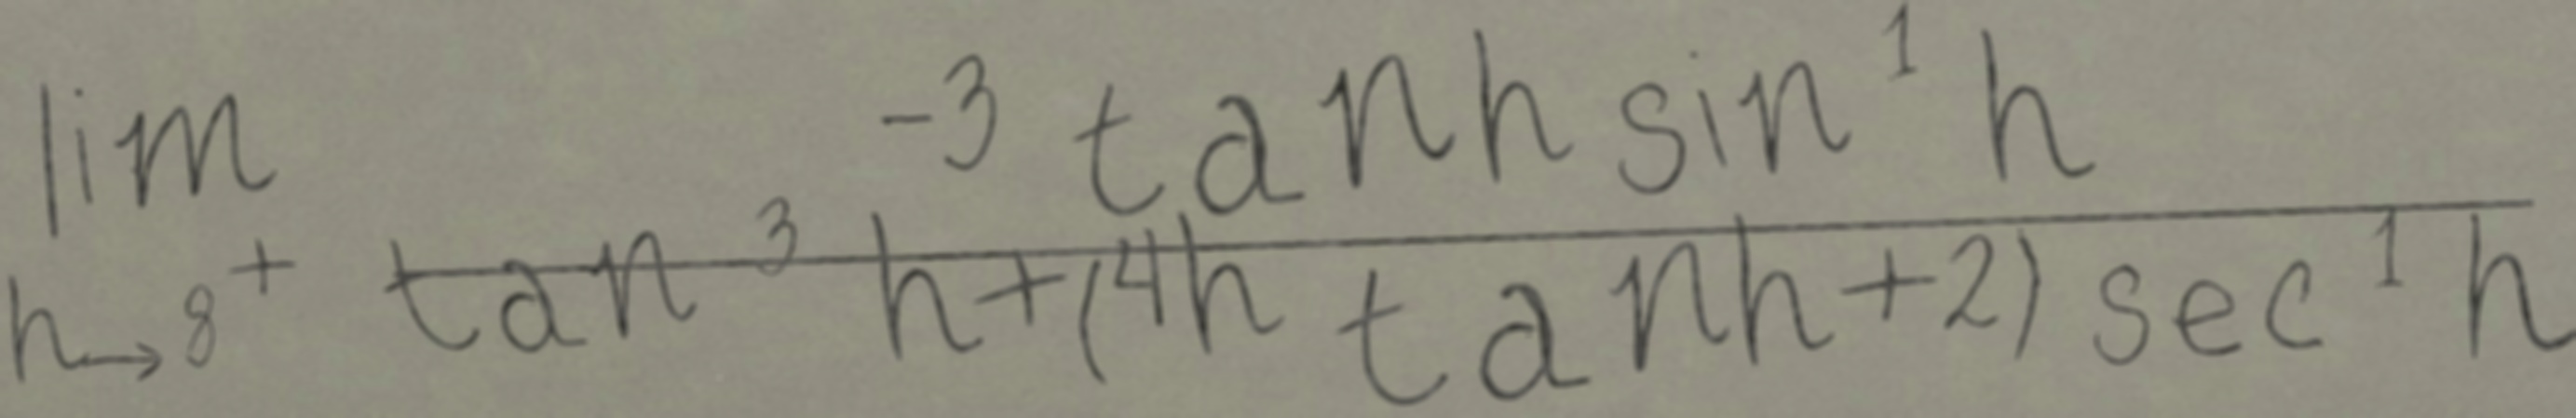 lim -3 tan h sin^1 h
h→8^+ tan^3 h+(4h tan h+2) sec^1 h